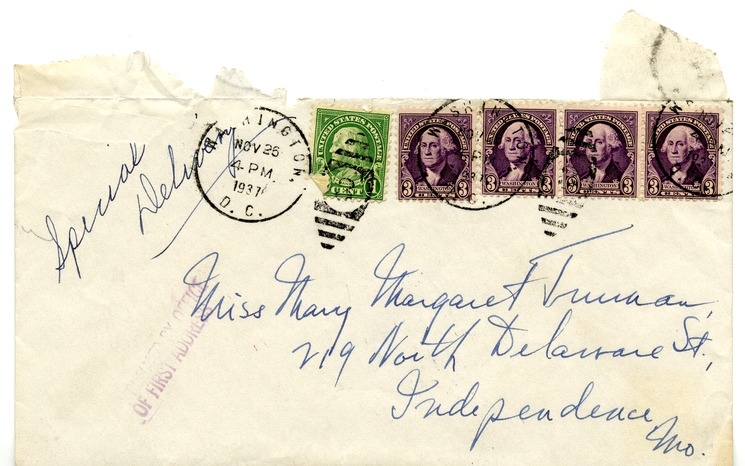 Special
Delivery
WASHINGTON,
NOV 26
4 PM
1937
D. C.
UNITED STATES POSTAGE
1 CENT
UNITED STATES POSTAGE
WASHINGTON
3 CENTS 3
UNITED STATES POSTAGE
WASHINGTON
3 CENTS 3
UNITED STATES POSTAGE
WASHINGTON
3 CENTS 3
UNITED STATES POSTAGE
WASHINGTON
3 CENTS 3
OFFICE
OF FIRST ADDRESS
Miss Mary Margaret Truman,
219 North Delaware St.,
Independence,
Mo.